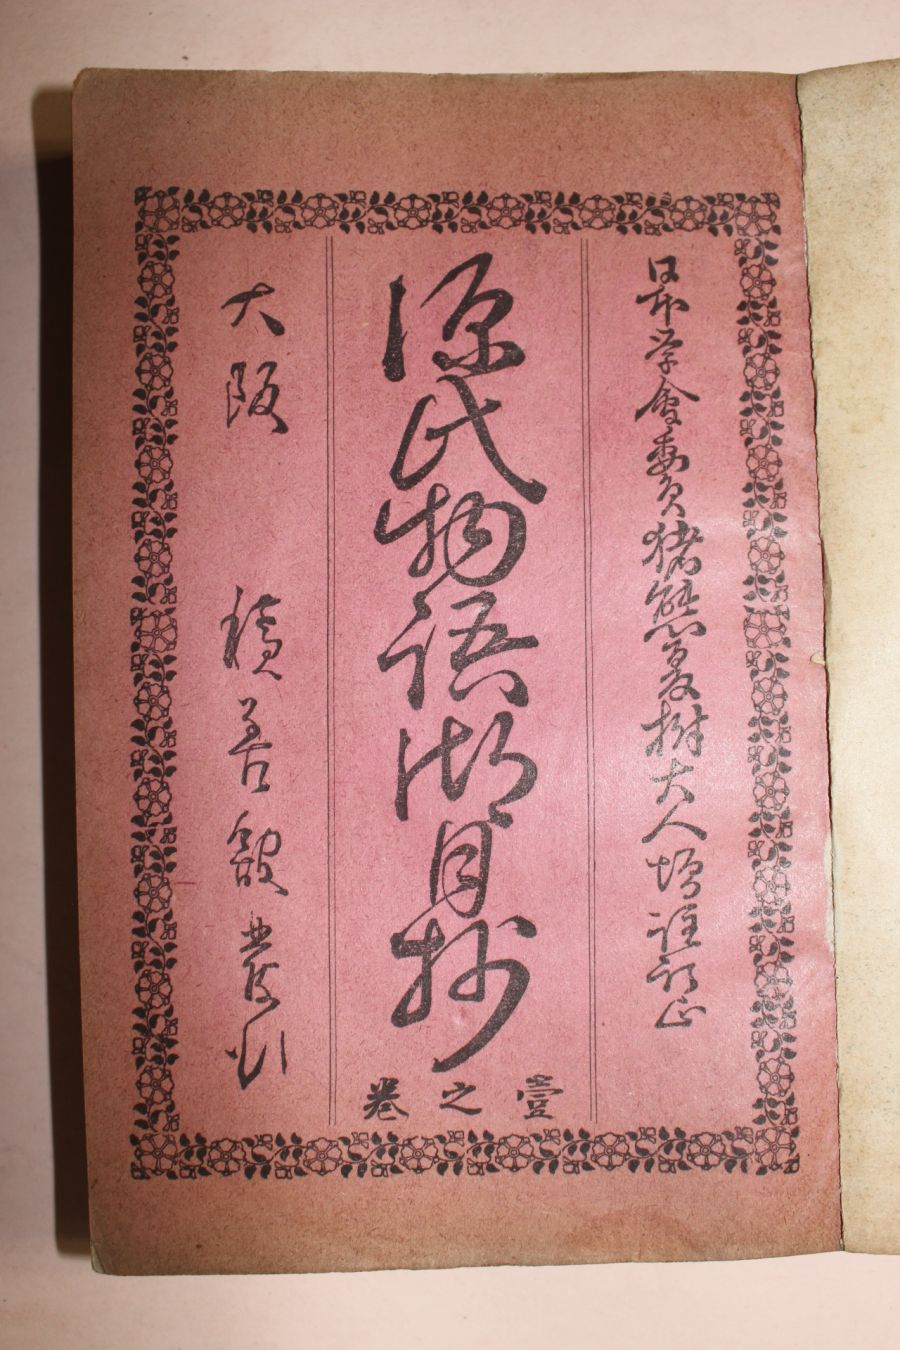 日本学會委員猪熊夏樹大人増註訂正
源氏物語湖月抄
壹之巻
大阪 積善館發行